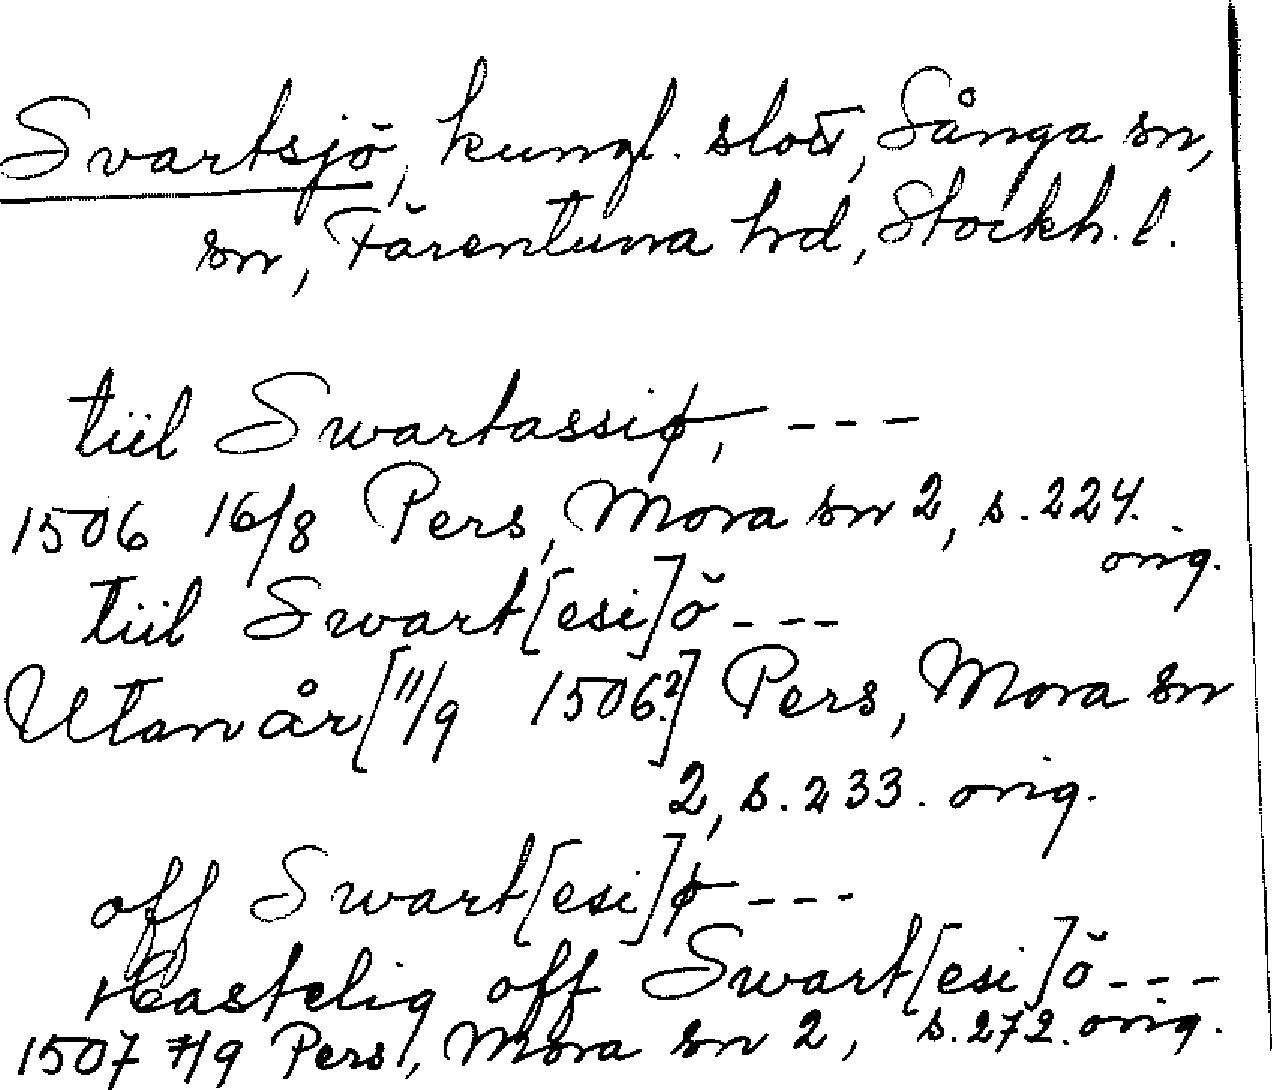 Svartsjö, kungl. slott, Sånga sn,
sn, Färentuna hd, Stockh. l.
tiil Swartassiø, ---
1506 16/8 Pers, Mora sn 2, s. 224.
orig.
tiil Swart[esi]ö ---
Utan år [11/9 1506?] Pers, Mora sn
2, s. 233. orig.
off Swart[esi]ø ---
Hastelig off Swart[esi]ö ---
1507 7/9 Pers, Mora sn 2, s. 272. orig.